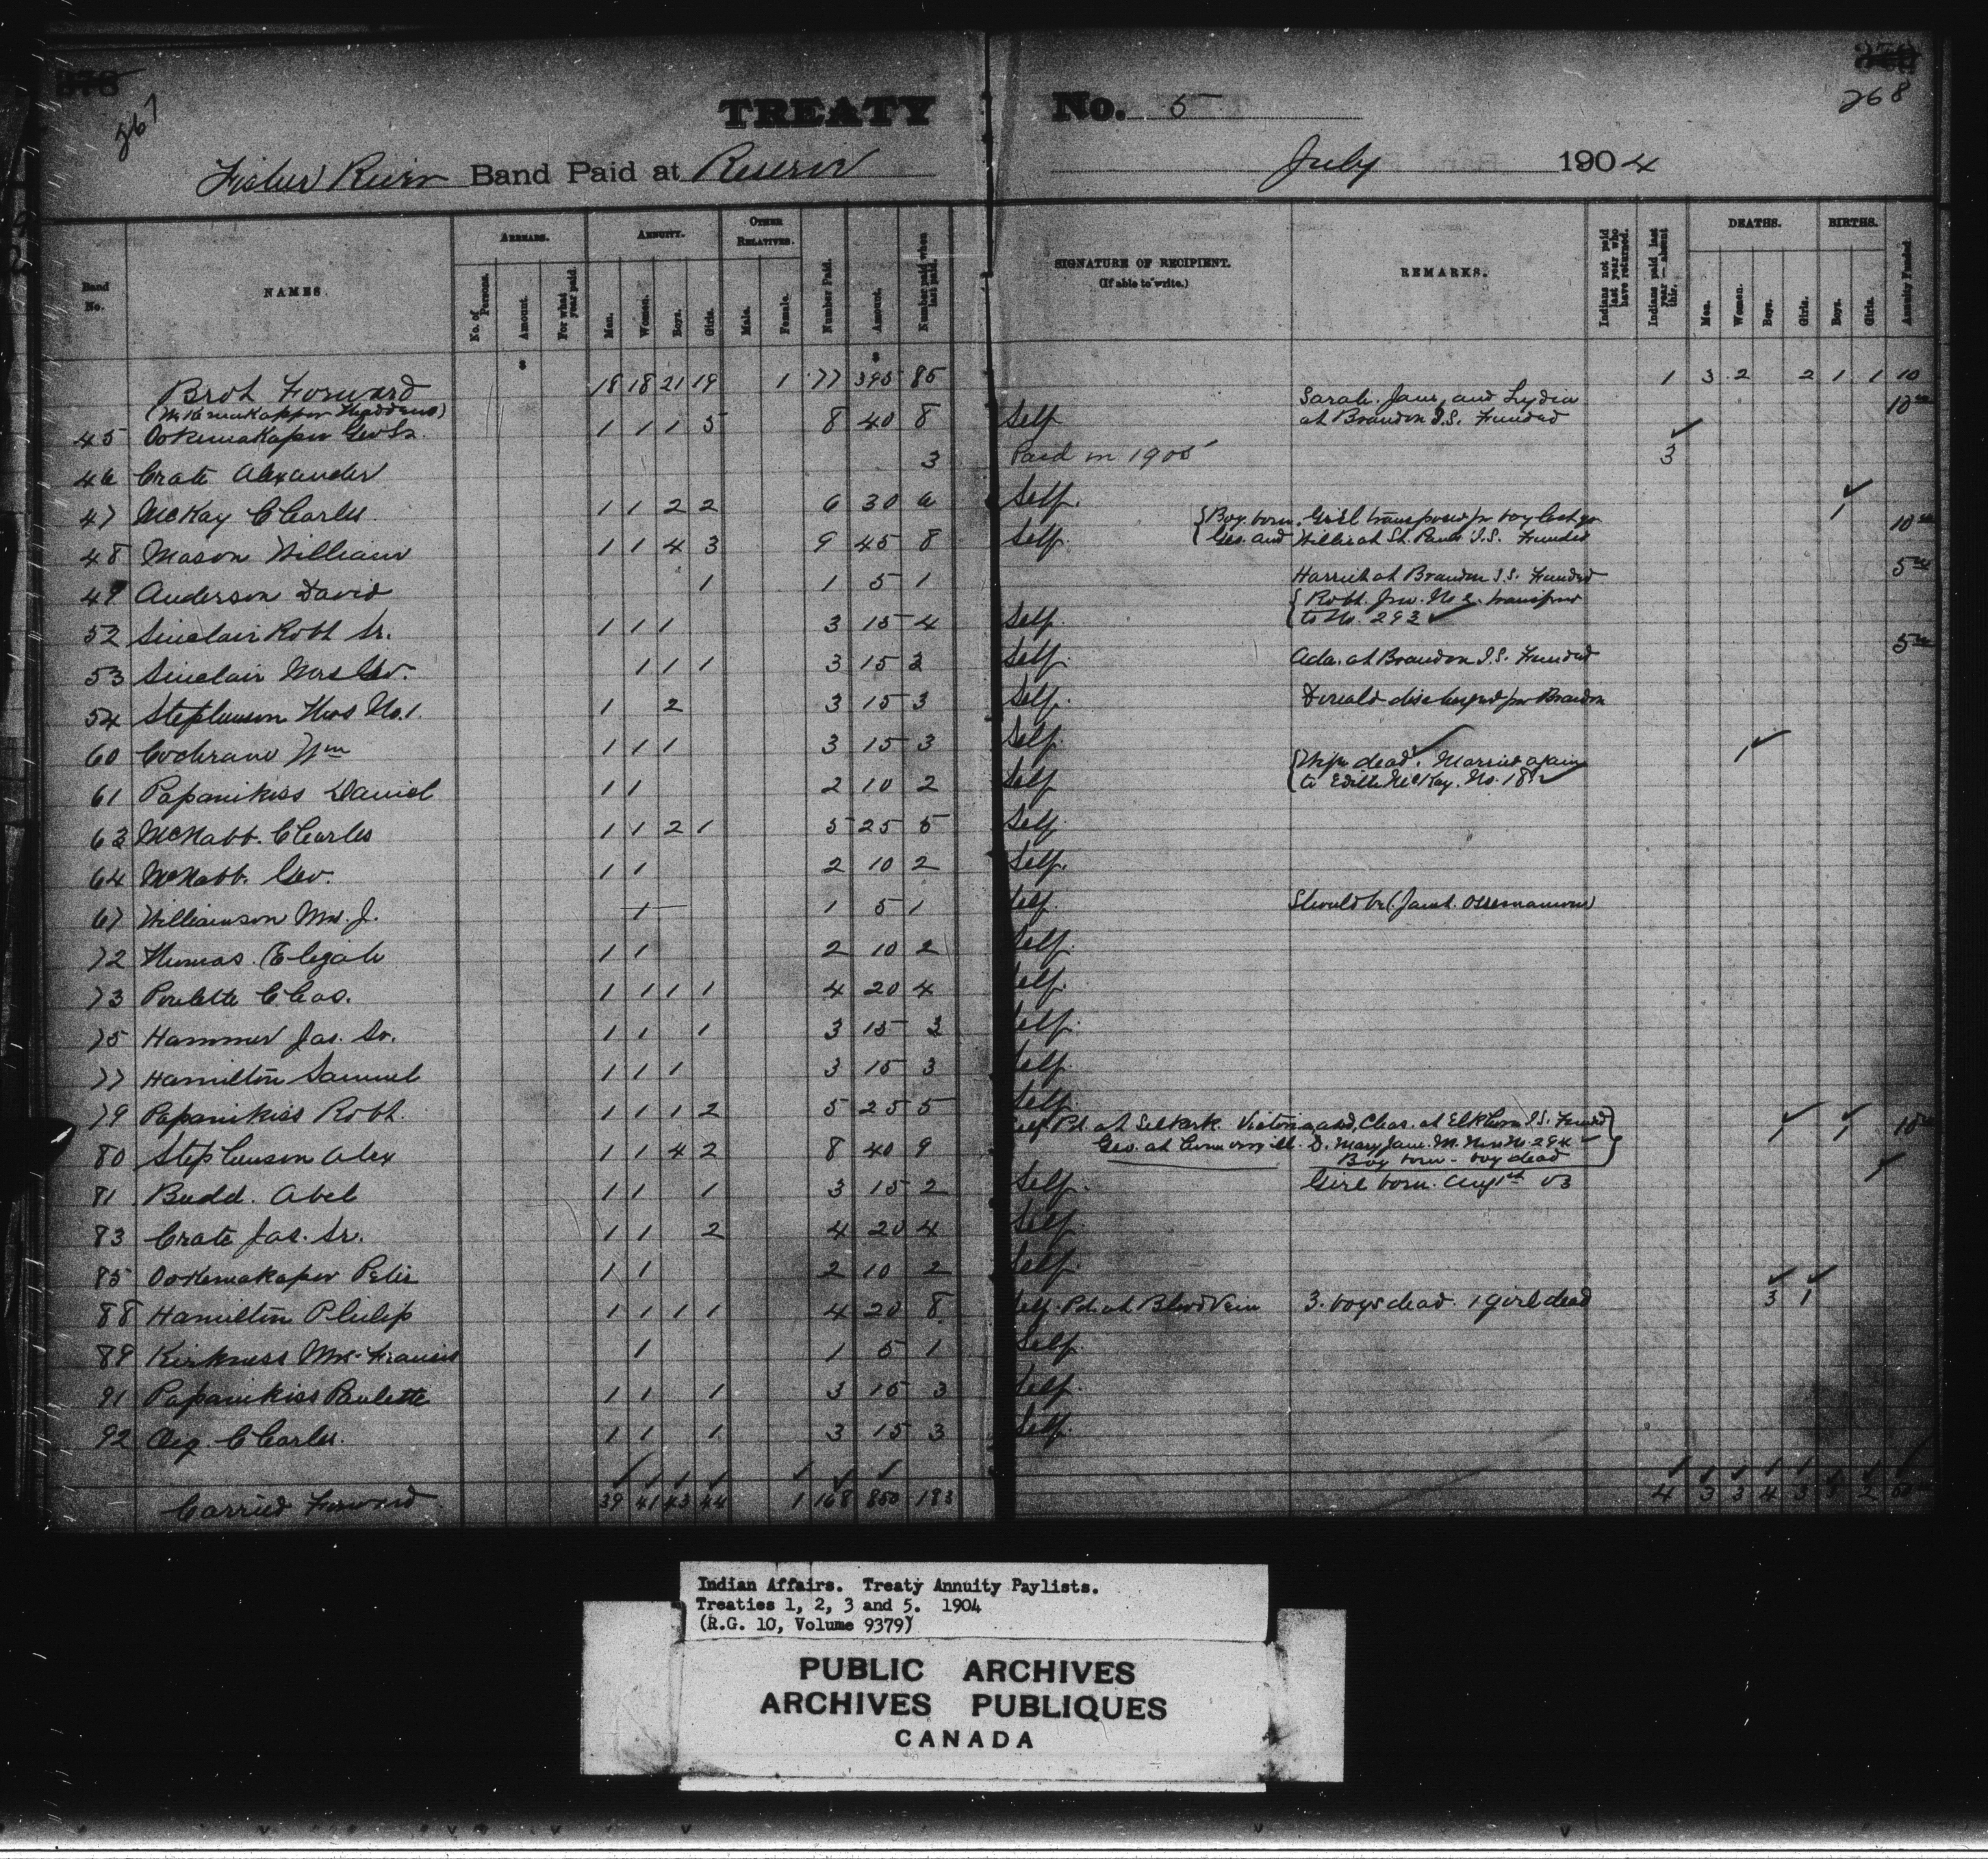 267
268
TREATY No. 5
Fisher River Band Paid at Reserve July 1904
Band No.
NAMES.
ARREARS.
No. of Persons.
Amount.
For what year paid.
ANNUITY.
Men.
Women.
Boys.
Girls.
OTHER RELATIVES.
Male.
Female.
Number Paid.
Amount.
Number paid when last paid.
SIGNATURE OF RECIPIENT.
(If able to write.)
REMARKS.
Indians not paid last year who have returned.
Indians paid last year — absent this.
DEATHS.
Men.
Women.
Boys.
Girls.
BIRTHS.
Boys.
Girls.
Annuity Funded.
$ $
Brot Forward 18 18 21 19 1 77 395 85 1 3 2 2 1 1 10
Sarah. Jane, and Lydia
45 Ookemakapow Geo Sr. 1 1 1 5 8 40 8 Self at Brandon I.S. Funded 10
46 Crate Alexander 3 Paid in 1905 3
47 McKay Charles. 1 1 2 2 6 30 6 Self.
{ Boy born. Girl transposed for boy last yr 1
48 Mason William 1 1 4 3 9 45 8 Self Geo. and Willie at St. Pauls I.S. Funded 10
49 Anderson David 1 1 5 1 Harriet at Brandon I.S. Funded 5
52 Sinclair Robt Sr. 1 1 1 3 15 4 Self. { Robt. Jnr. No 2. transferred
to No. 293
53 Sinclair Mrs Geo. 1 1 1 3 15 3 Self. Ada. at Brandon I.S. Funded 5
54 Stephenson Thos No. 1. 1 2 3 15 3 Self. Donald discharged fm Brandon
60 Cochrane Wm 1 1 1 3 15 3 Self. 1
61 Papanikiss Daniel 1 1 2 10 2 Self { Wife dead. Married again
to Edith McKay. No. 18
63 McNabb. Charles 1 1 2 1 5 25 5 Self.
64 McNabb. Geo. 1 1 2 10 2 Self.
67 Williamson Mrs. J. 1 1 5 1 Self. Should be
72 Thomas. Elijah 1 1 2 10 2 Self.
73 Poulette Chas. 1 1 1 1 4 20 4 Self.
75 Hammer Jas. Sr. 1 1 1 3 15 3 Self.
77 Hamilton Samuel 1 1 1 3 15 3 Self.
79 Papanikiss Robt. 1 1 1 2 5 25 5 Self.
80 Stephenson Alex 1 1 4 2 8 40 9 Self Pd. at Selkark. Victoria and, Chas. at Elkhorn I.S. Funded } 1 1 10
Geo. at D. Mary Jane. M. Now No. 294
Boy born - boy dead
81 Budd. Abel 1 1 1 3 15 2 Self. Girl born. Aug 1st 03 1
83 Crate Jas. Sr. 1 1 2 4 20 4 Self
85 Ookemakapow Peter 1 1 2 10 2 Self.
88 Hamilton Philip 1 1 1 1 4 20 8 Self. Pd. at Blood Vein 3. boys dead. 1 girl dead 3 1
89 Kirkness Mrs. Francis 1 1 5 1 Self.
91 Papanikiss Paulette 1 1 1 3 15 3 Self.
92 Aig. Charles. 1 1 1 3 15 3 Self.
Carried Forward 39 41 43 44 1 168 850 183 4 3 3 4 3 3 2 50
Indian Affairs. Treaty Annuity Paylists.
Treaties 1, 2, 3 and 5. 1904
(R.G. 10, Volume 9379)
PUBLIC ARCHIVES
ARCHIVES PUBLIQUES
CANADA